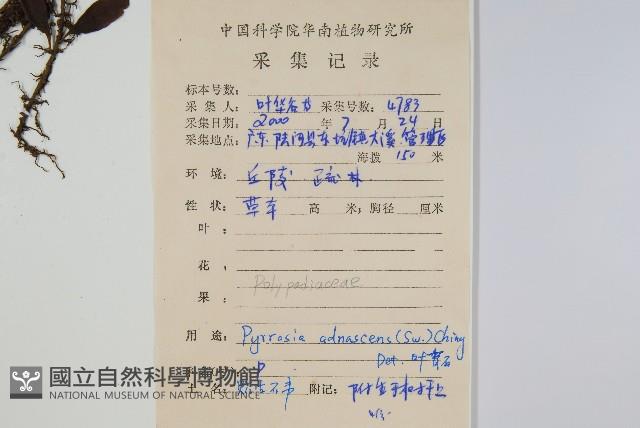 中国科学院华南植物研究所
采集记录
标本号数:
采集人: 叶华谷 采集号数: 4783
采集日期: 2000 年 7 月 24 日
采集地点: 广东 陆河县东坑镇大溪管理区
海拨 150 米
环境: 丘陵 疏林
性状: 草本 高 米; 胸径 厘米
叶:
花:
Polypodiaceae
果:
用途: Pyrrosia adnascens (Sw.) Ching
Det. 叶华谷
土名: 石韦 附记: 附生于树干上
國立自然科學博物館
NATIONAL MUSEUM OF NATURAL SCIENCE